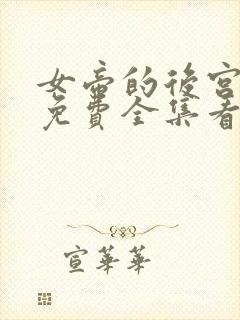 女帝的後宮
免費全集看
宣華華